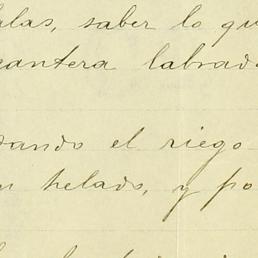 alas, saber lo qu
cantera labrad
ando el riego
n helado, y po